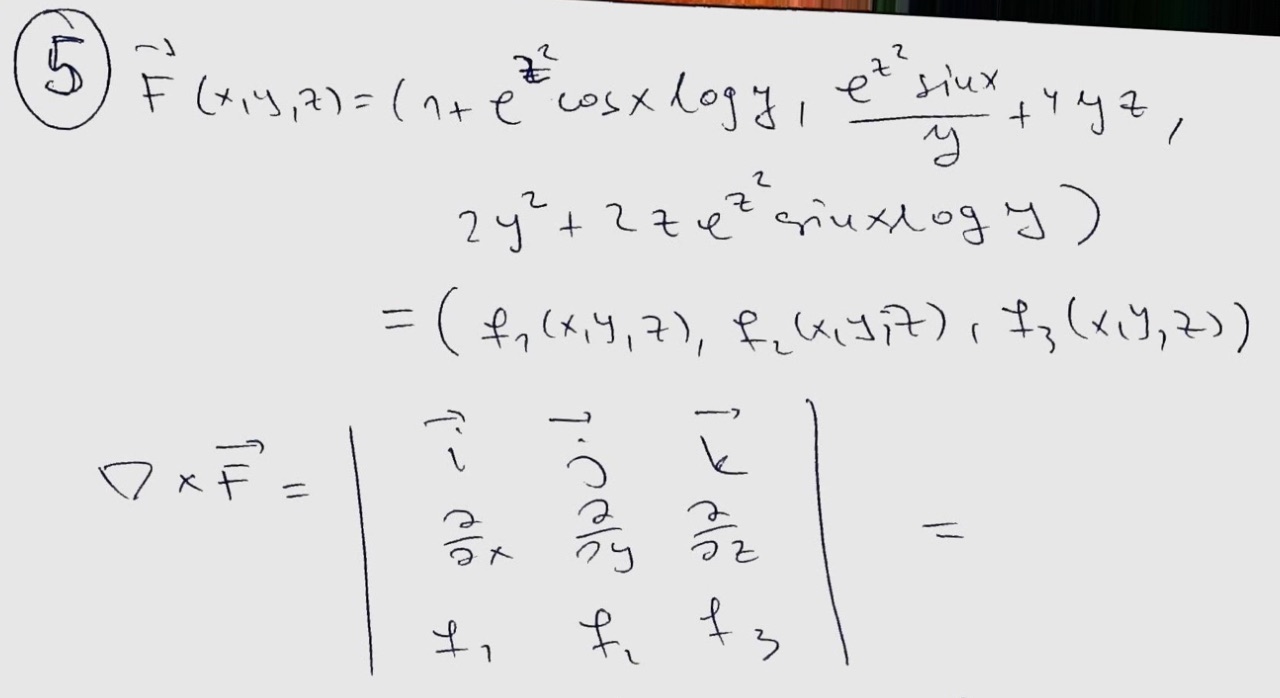 ⑤ F⃗ (x,y,z) = (1 + e^{z²} cosx logy, e^{z²} sinx / y + 4yz,
2y² + 2z e^{z²} sinx log y)
= (f₁(x,y,z), f₂(x,y,z), f₃(x,y,z))
∇ × F⃗ = | i⃗ j⃗ k⃗ |
| ∂/∂x ∂/∂y ∂/∂z | =
| f₁ f₂ f₃ |